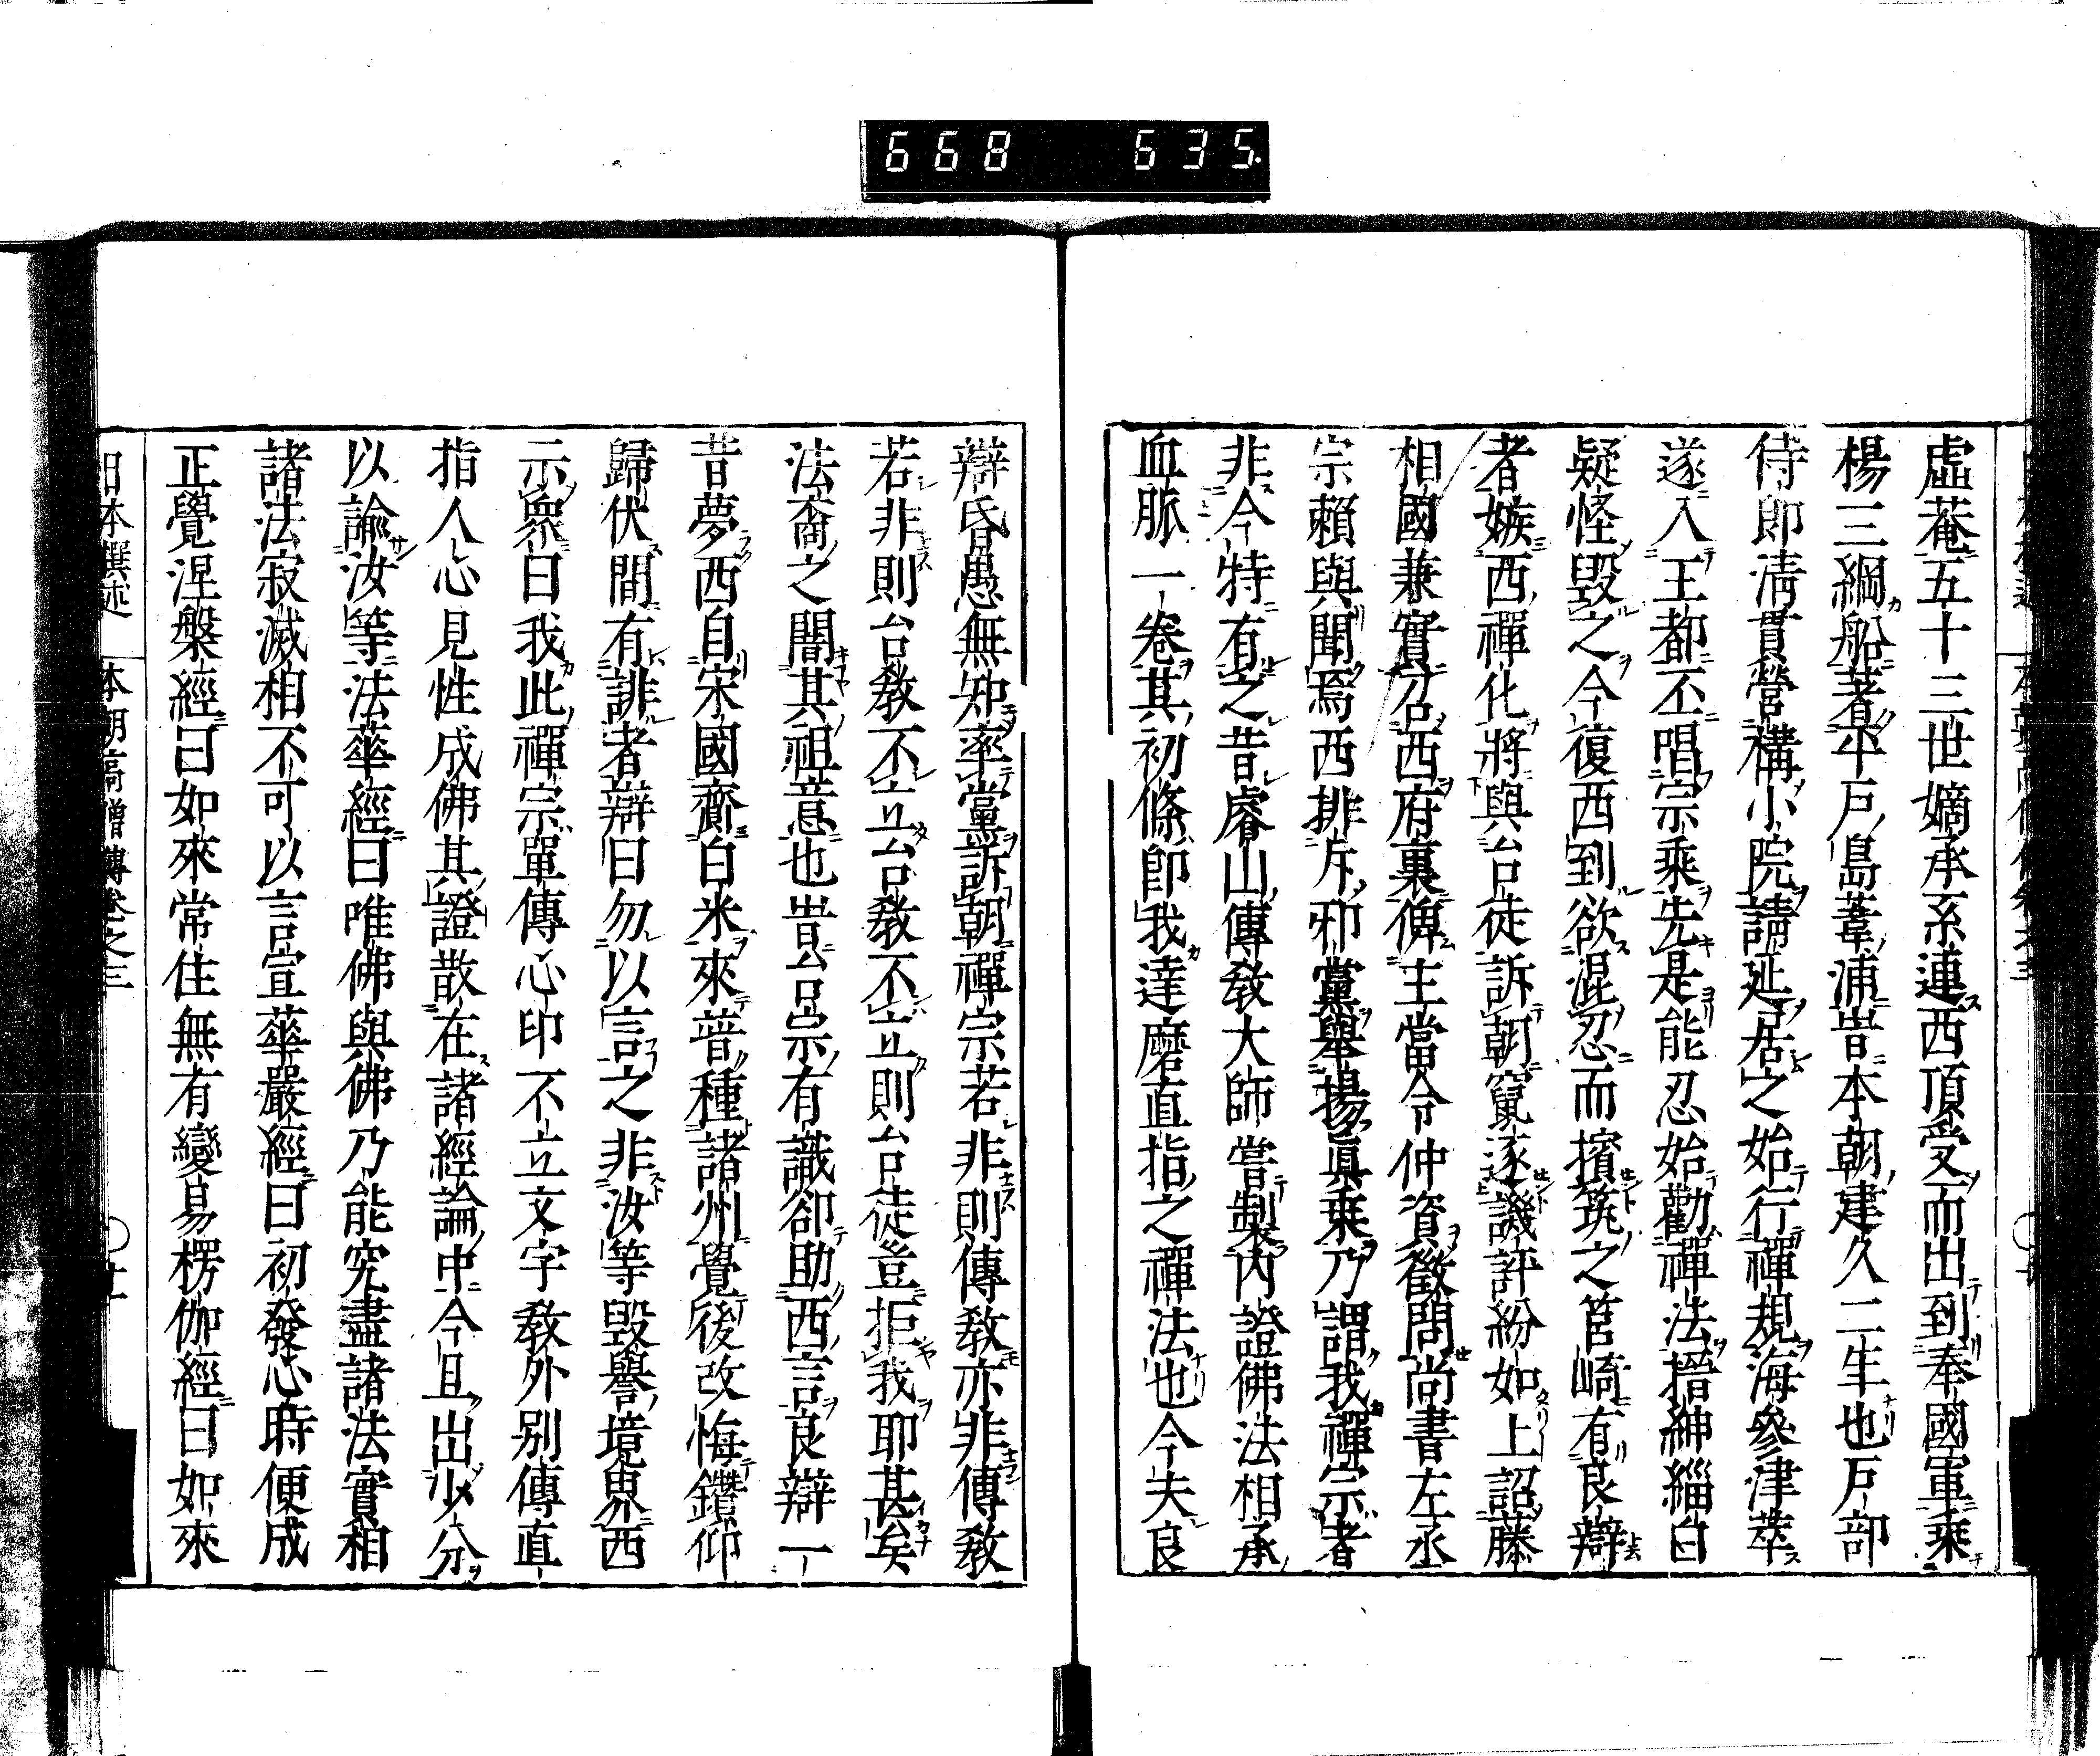 668 635.
虛菴五十三世嫡承系連西頂受而出到奉國軍乘
楊三綱船著平戶島葦浦皆本朝建久二年也戶部
侍郎淸貫營構小院請延居之始行禪規海參津萃
遂入王都丕唱宗乘先是能忍始勸禪法搢紳緇白
疑怪毀之今復西到欲混忍而擯筑之筥崎有良辯
者嫉西禪化將與台徒訴朝竄逐譏評紛如上詔藤
相國兼實召西府裏俾主當令仲資徵問尚書左丞
宗賴與聞焉西排斥邪黨舉揚眞乘乃謂我禪宗者
非今特有之昔睿山傳敎大師嘗製內證佛法相承
血脈一卷其初條卽我達磨直指之禪法也今夫良
辯昏愚無知牽黨訴朝禪宗若非則傳敎亦非傳敎
若非則台敎不立台敎不立則台徒豈拒我耶甚矣
法裔之闇其祖意也皆台宗有識卻助西言良辯一
昔夢西自宋國齎白米來普種諸州覺後改悔鑽仰
歸伏間有誹者辯曰勿以言之非汝等毀譽境界西
示衆曰我此禪宗單傳心印不立文字敎外別傳直
指人心見性成佛其證散在諸經論中今且出少分
以諭汝等法華經曰唯佛與佛乃能究盡諸法實相
諸法寂滅相不可以言宣華嚴經曰初發心時便成
正覺涅槃經曰如來常住無有變易楞伽經曰如來
日本撰述 本朝高僧傳卷之三